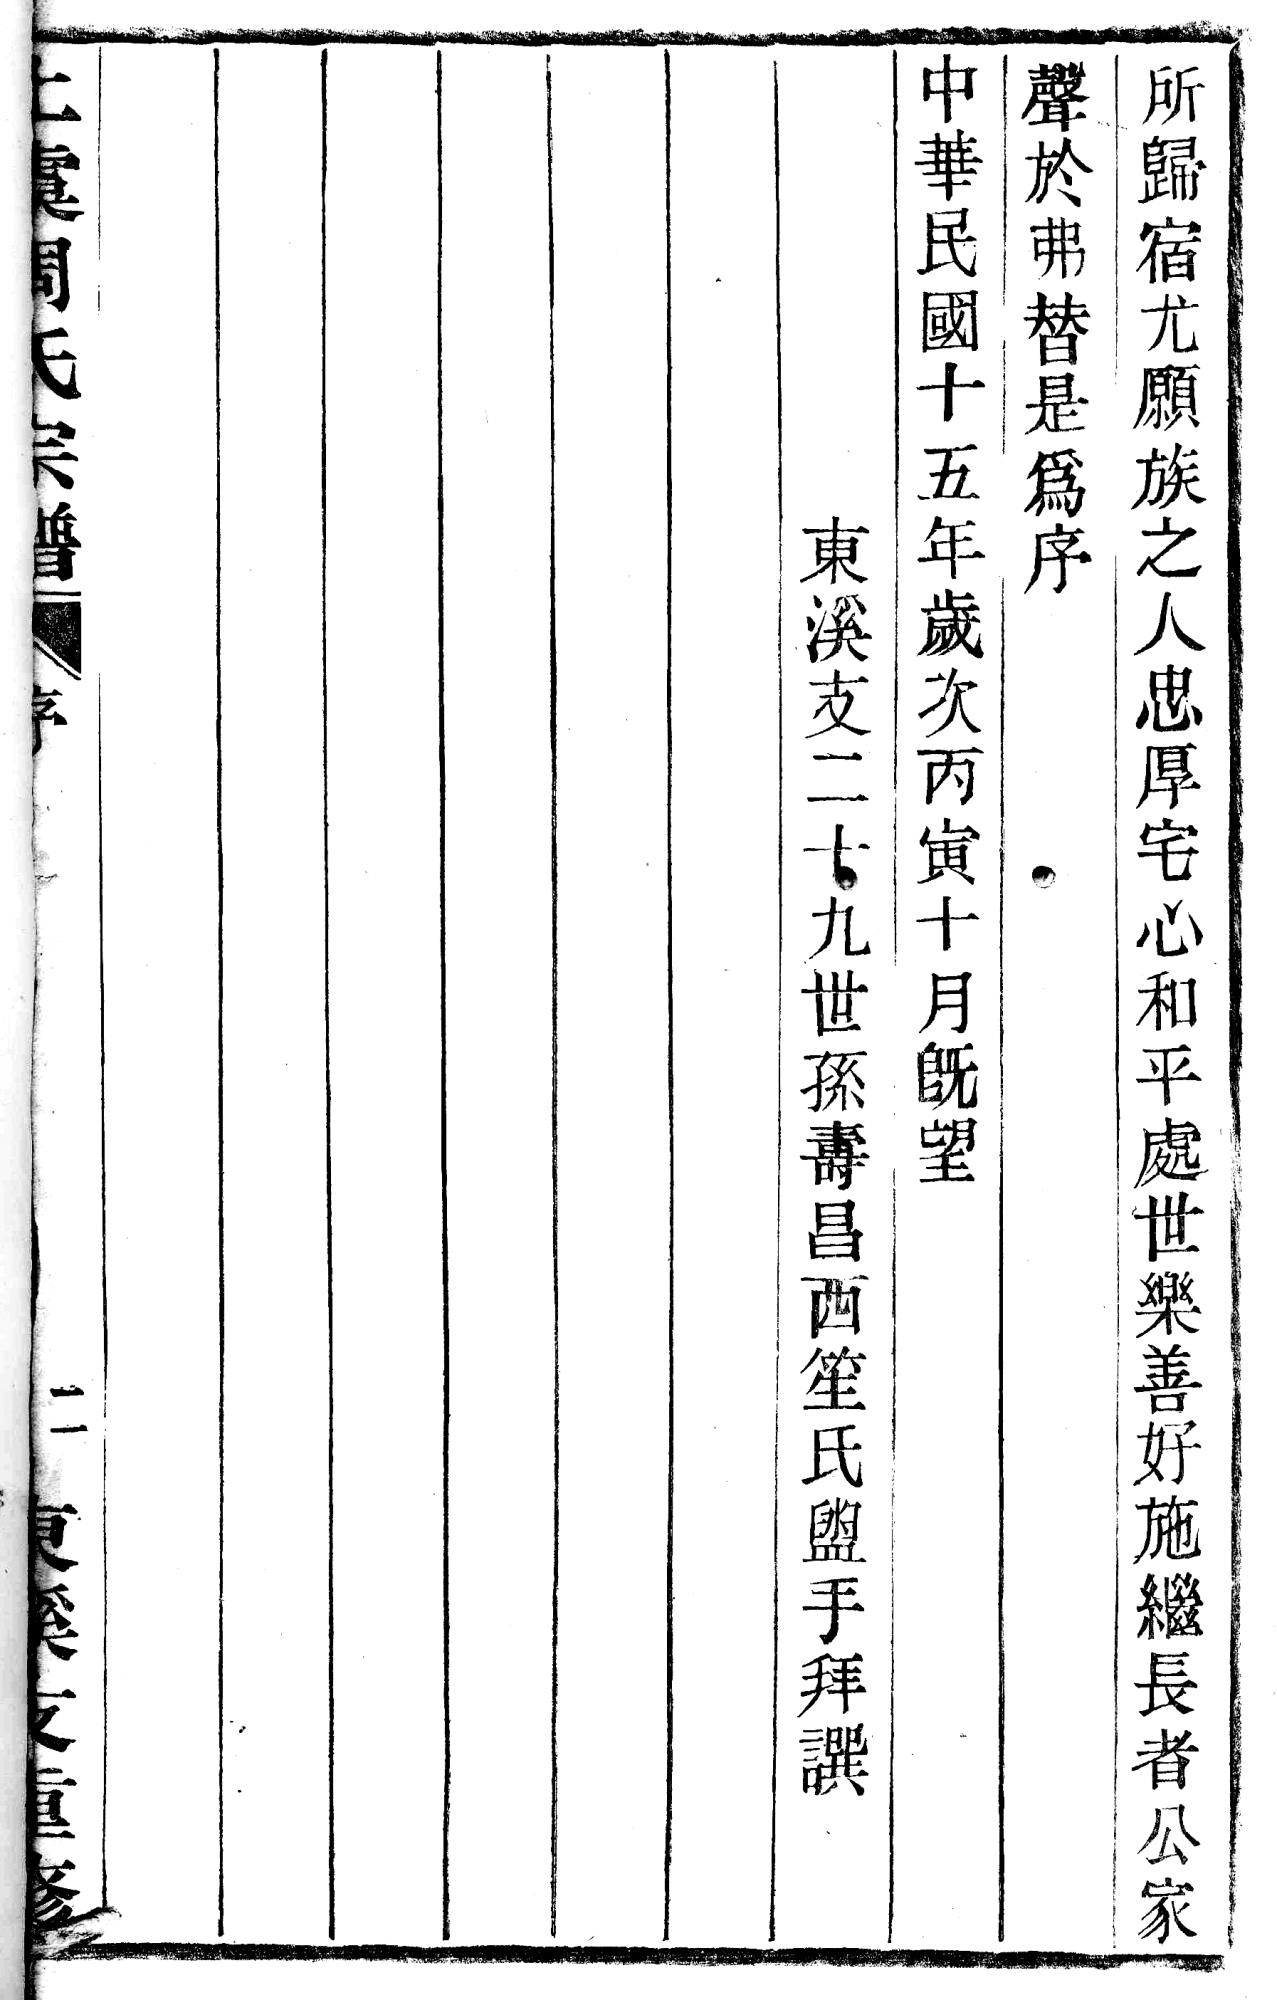 所歸宿尤願族之人忠厚宅心和平處世樂善好施繼長者公家
聲於弗替是爲序
中華民國十五年歲次丙寅十月既望
東溪支二十九世孫壽昌西笙氏盥手拜譔
上虞周氏宗譜 序 二 東溪支重修